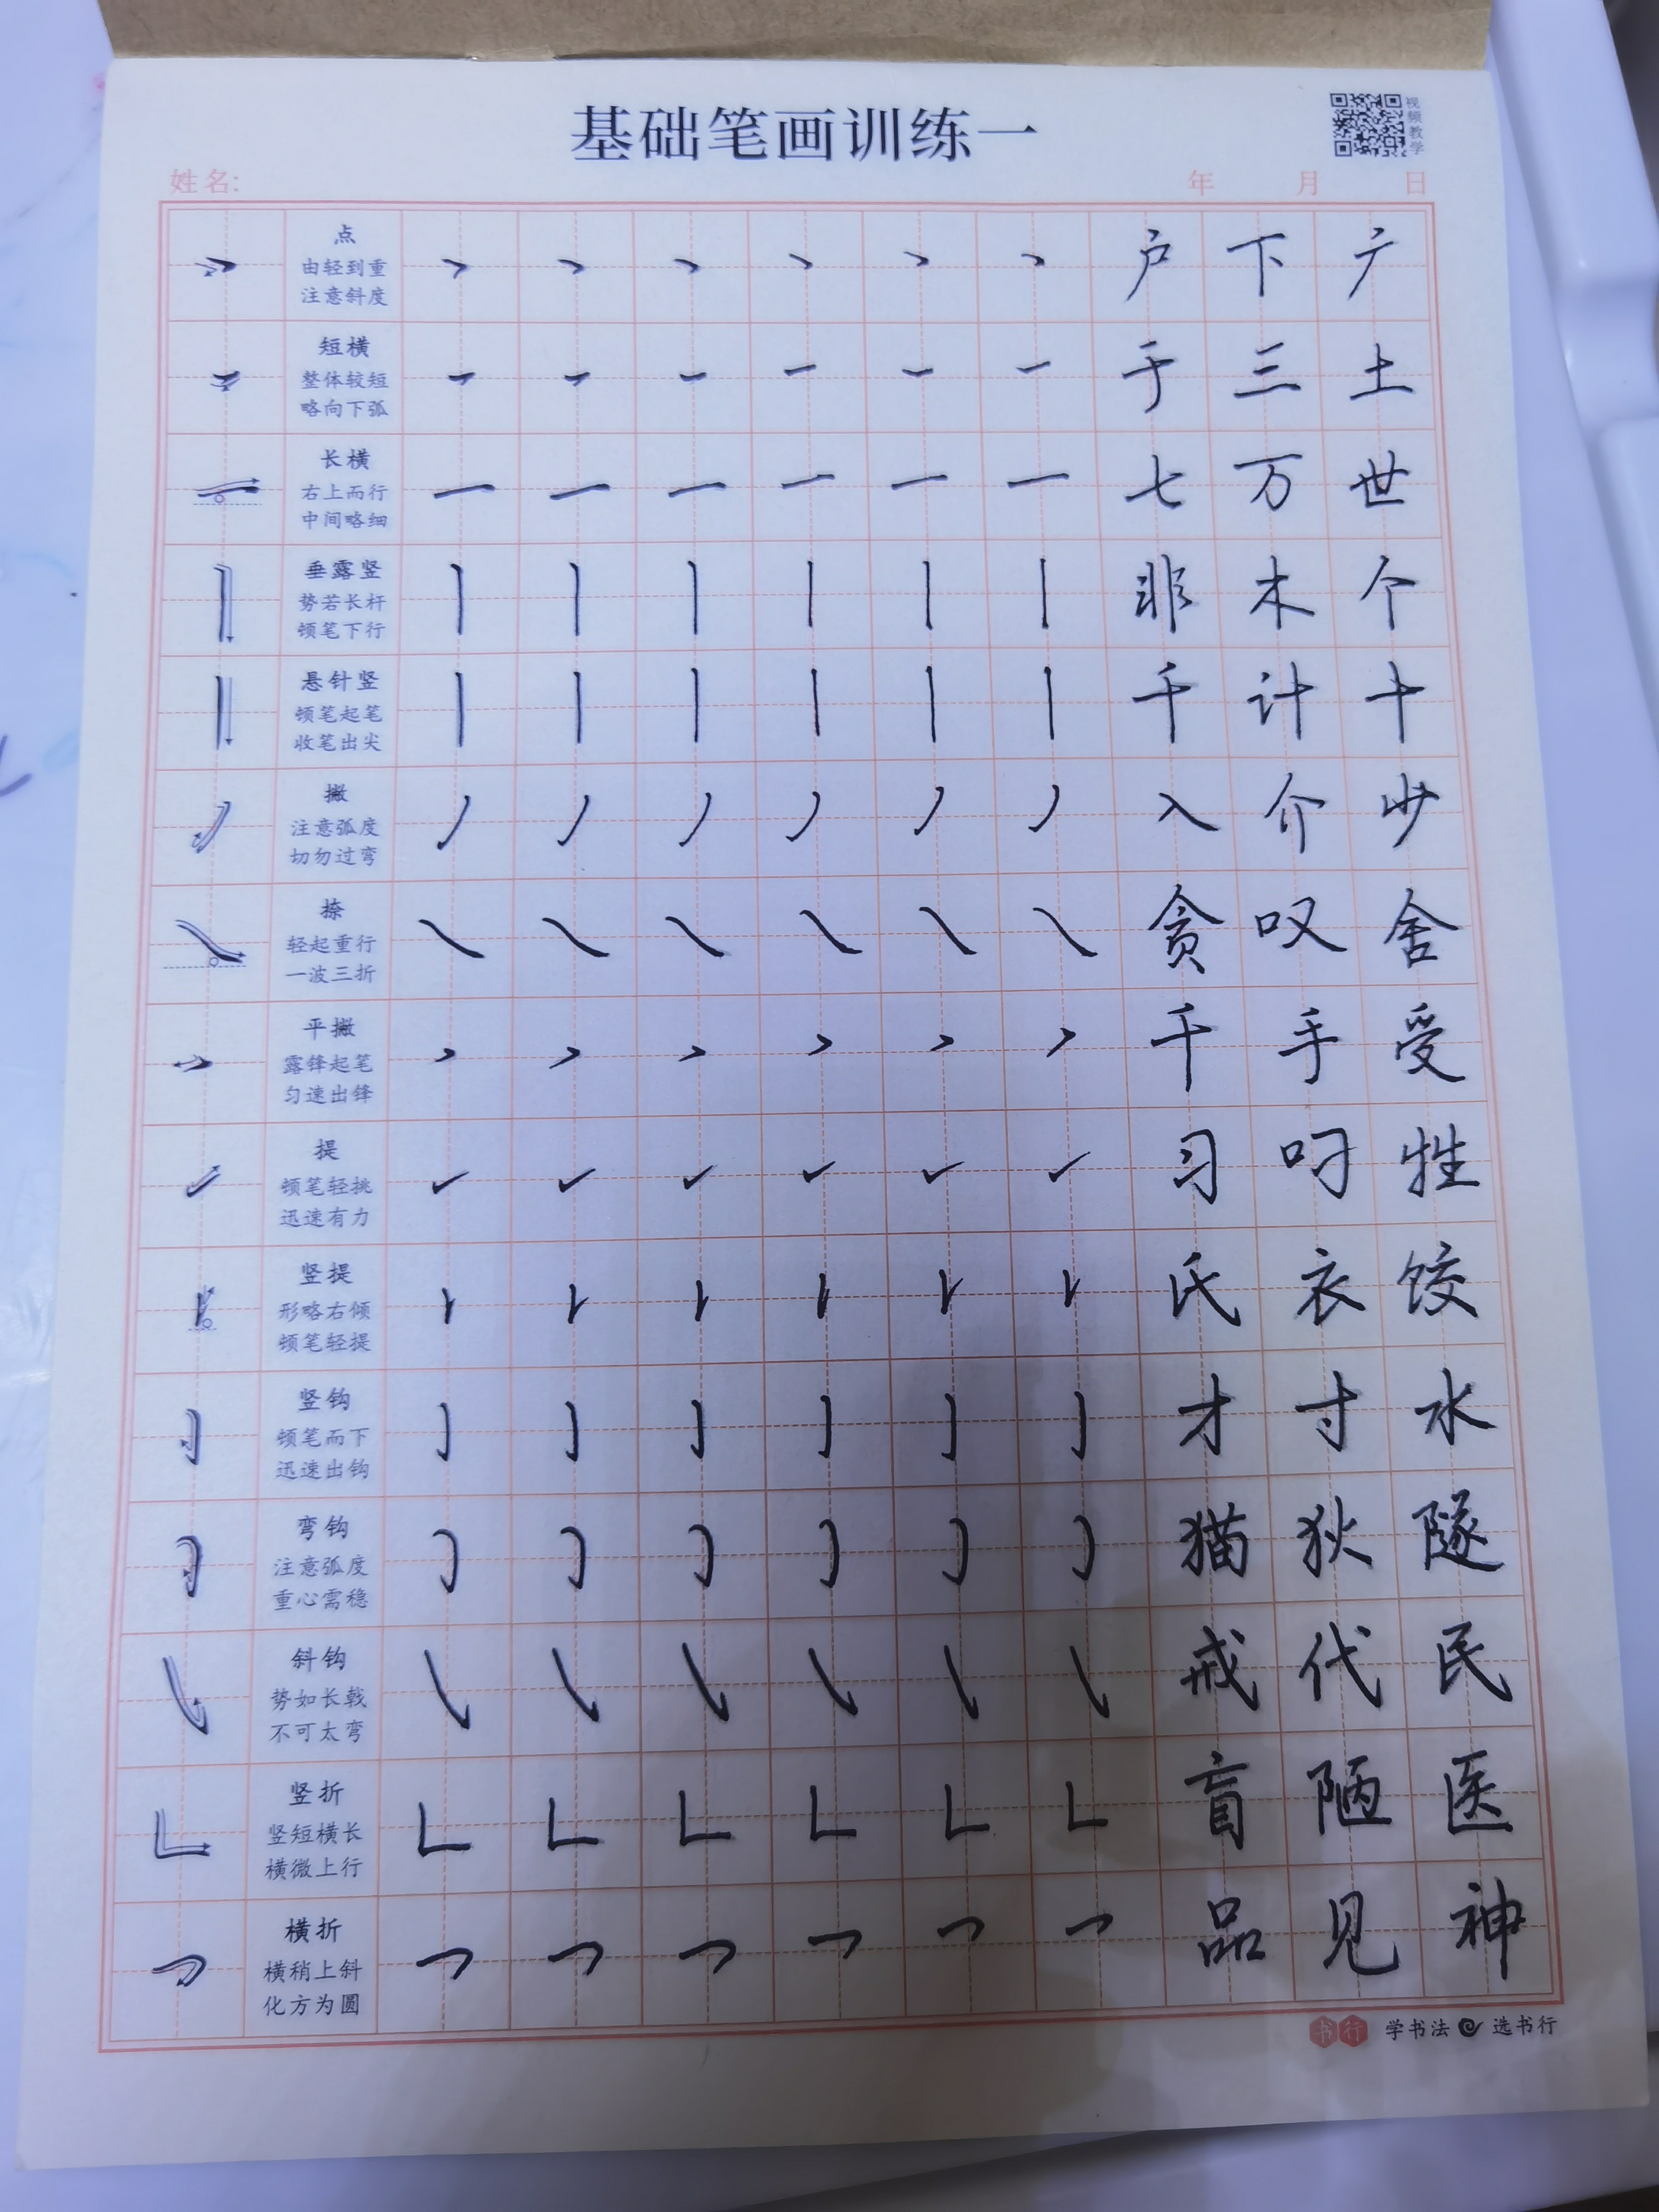 基础笔画训练一
视频教学
姓名: 年 月 日
点 由轻到重 注意斜度 户 下 广
短横 整体较短 略向下弧 于 三 土
长横 右上而行 中间略细 七 万 世
垂露竖 势若长杆 顿笔下行 非 木 个
悬针竖 顿笔起笔 收笔出尖 千 计 十
撇 注意弧度 切勿过弯 入 介 少
捺 轻起重行 一波三折 贪 叹 舍
平撇 露锋起笔 匀速出锋 千 手 受
提 顿笔轻挑 迅速有力 习 叼 牲
竖提 形略右倾 顿笔轻提 氏 衣 饺
竖钩 顿笔而下 迅速出钩 才 寸 水
弯钩 注意弧度 重心需稳 猫 狄 隧
斜钩 势如长戟 不可太弯 戒 代 民
竖折 竖短横长 横微上行 盲 陋 医
横折 横稍上斜 化方为圆 品 见 神
书行 学书法 选书行